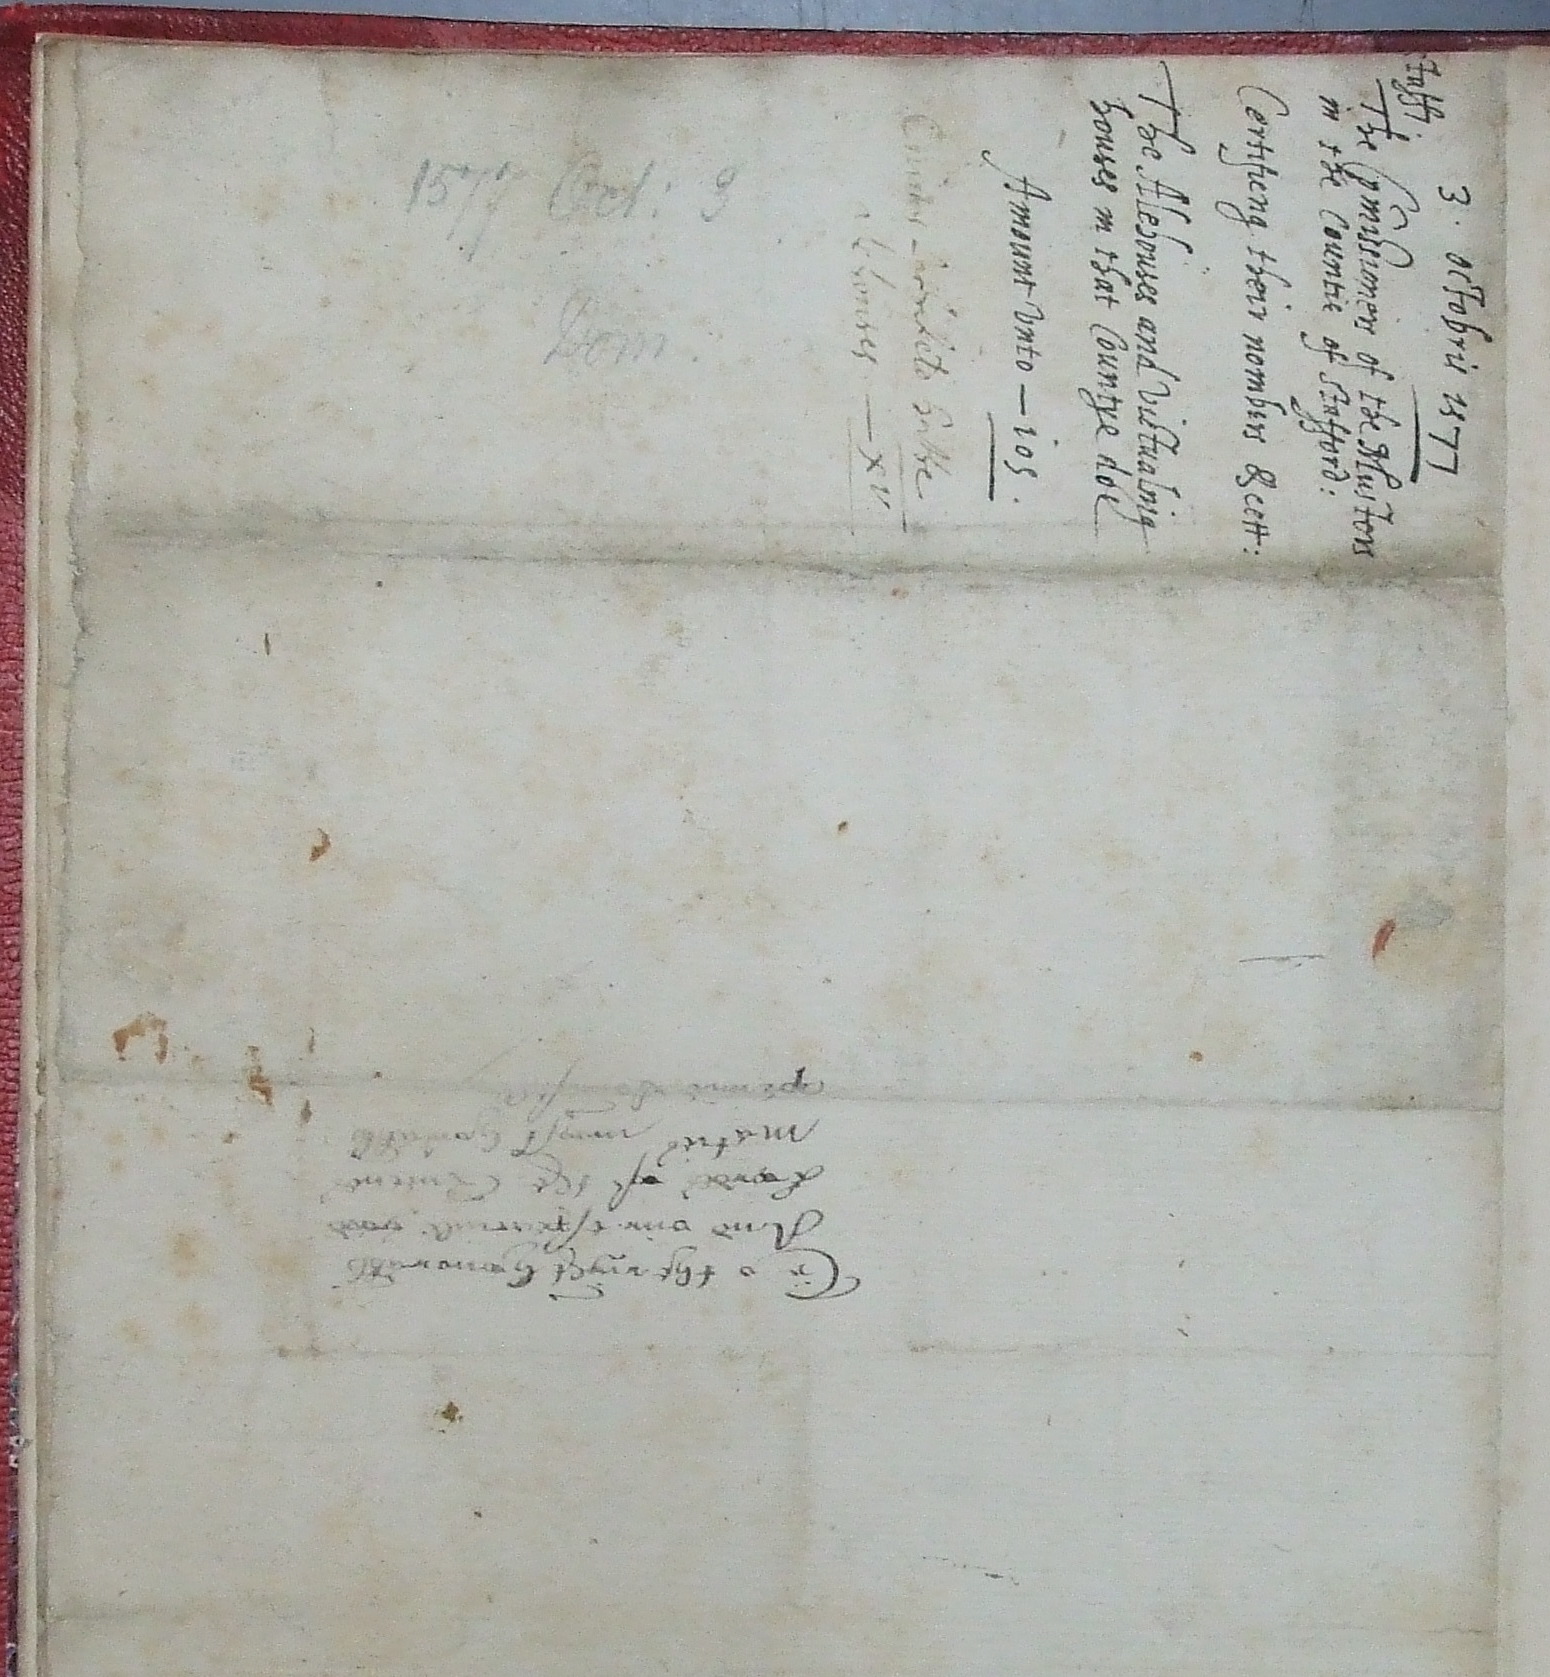 3. octobris 1577
Staff:
The Comissioners of the Musters
in the Countie of Stafford:
Certifieng their nombers &cett:
The Alehouses and victualing
houses in that Countye doe
Amount vnto – 105.
houses — xv.
1577 Oct: 3
Dom.
To the right honorable
And our good
Lordes of the Quenes
Maties most honorable